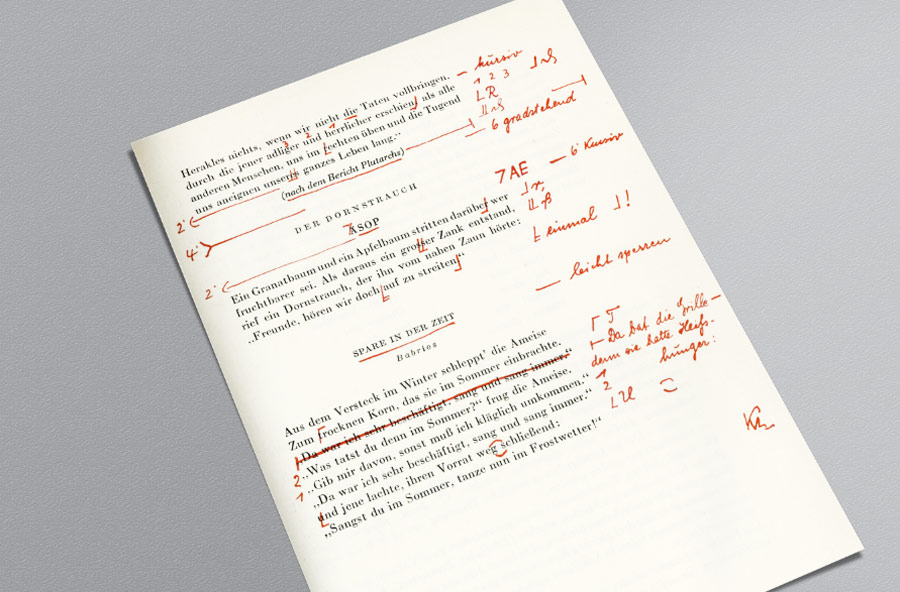 Herakles nichts, wenn wir nicht die Taten vollbringen, — kursiv
durch die jener adliger und herrlicher erschien, als alle 1 2 3
anderen Menschen, uns im fechten üben und die Tugend R
uns aneignen unsers ganzes Leben lang.“
(nach dem Bericht Plutarchs) — 6 gradstehend
2·
DER DORNSTRAUCH
4·
ÄSOP 7AE — 6· Kursiv
2·
Ein Granatbaum und ein Apfelbaum stritten darüber wer
fruchtbarer sei. Als daraus ein großer Zank entstand, ß
rief ein Dornstrauch, der ihn vom nahen Zaun hörte:
„Freunde, hören wir doch auf zu streiten“ einmal !
SPARE IN DER ZEIT — leicht sperren
Babrios
Aus dem Versteck im Winter schleppt’ die Ameise
Zum Trocknen Korn, das sie im Sommer einbrachte. T
„Da war ich sehr beschäftigt, sang und sang immer.“ Da bat die Grille –
denn sie hatte Heiß-
hunger:
2 „Was tatst du denn im Sommer?“ frug die Ameise. 1
1 „Gib mir davon, sonst muß ich kläglich umkommen.“ 2
„Da war ich sehr beschäftigt, sang und sang immer.“
und jene lachte, ihren Vorrat weg schließend: U
„Sangst du im Sommer, tanze nun im Frostwetter!“